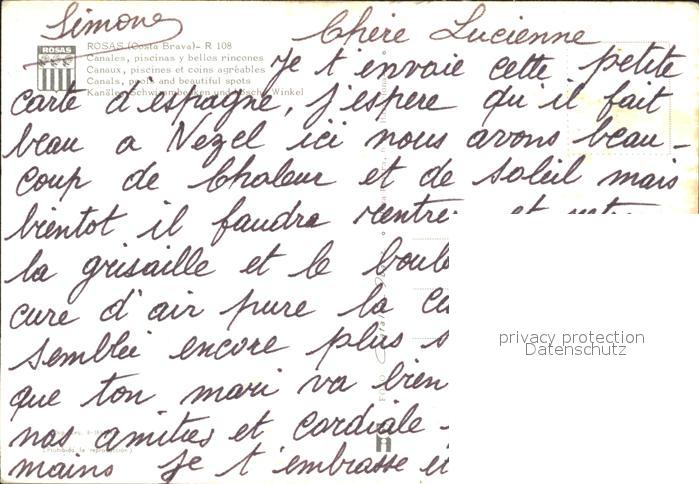 Simone
Chère Lucienne
ROSAS
ROSAS (Costa Brava) - R 108
Canales, piscinas y bellos rincones
Canaux, piscines et coins agréables
Canals, pools and beautiful spots
Kanäle, Schwimmbecken und hübsche Winkel
Je t'envoie cette petite
carte d'espagne, j'espère qu'il fait
beau a Nezel ici nous avons beau-
coup de Chaleur et de soleil mais
bientot il faudra rentrer et
la grisaille et le boul
cure d'air pure la
semblée encore plus
que ton mari va bien
nos amities et cordiale
mains Je t'embrasse et
(Prohibida la reproducción)
privacy protection
Datenschutz